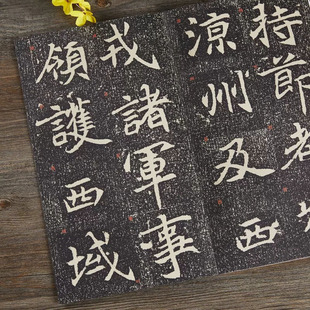 持節
涼州及西
戎諸軍事
領護西域